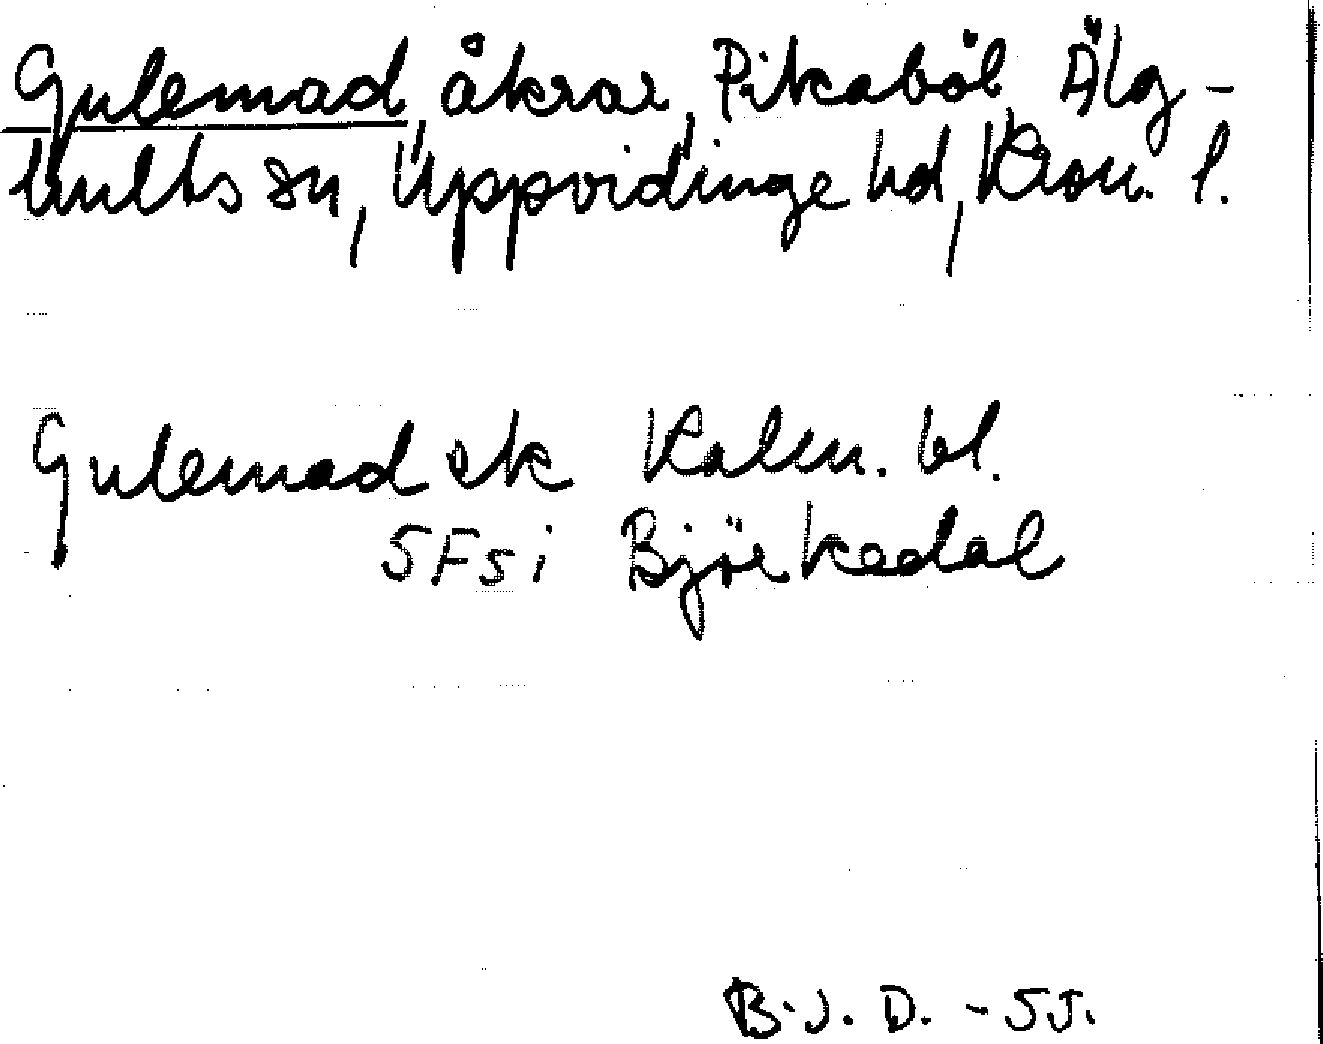 Gulemad, åkrar, Pikaböl, Älg-
bults sn, Uppvidinge hd, Kron. l.
Gulemad ek Kalen. bl.
5F5i Björkedal
B.J.D. -55.